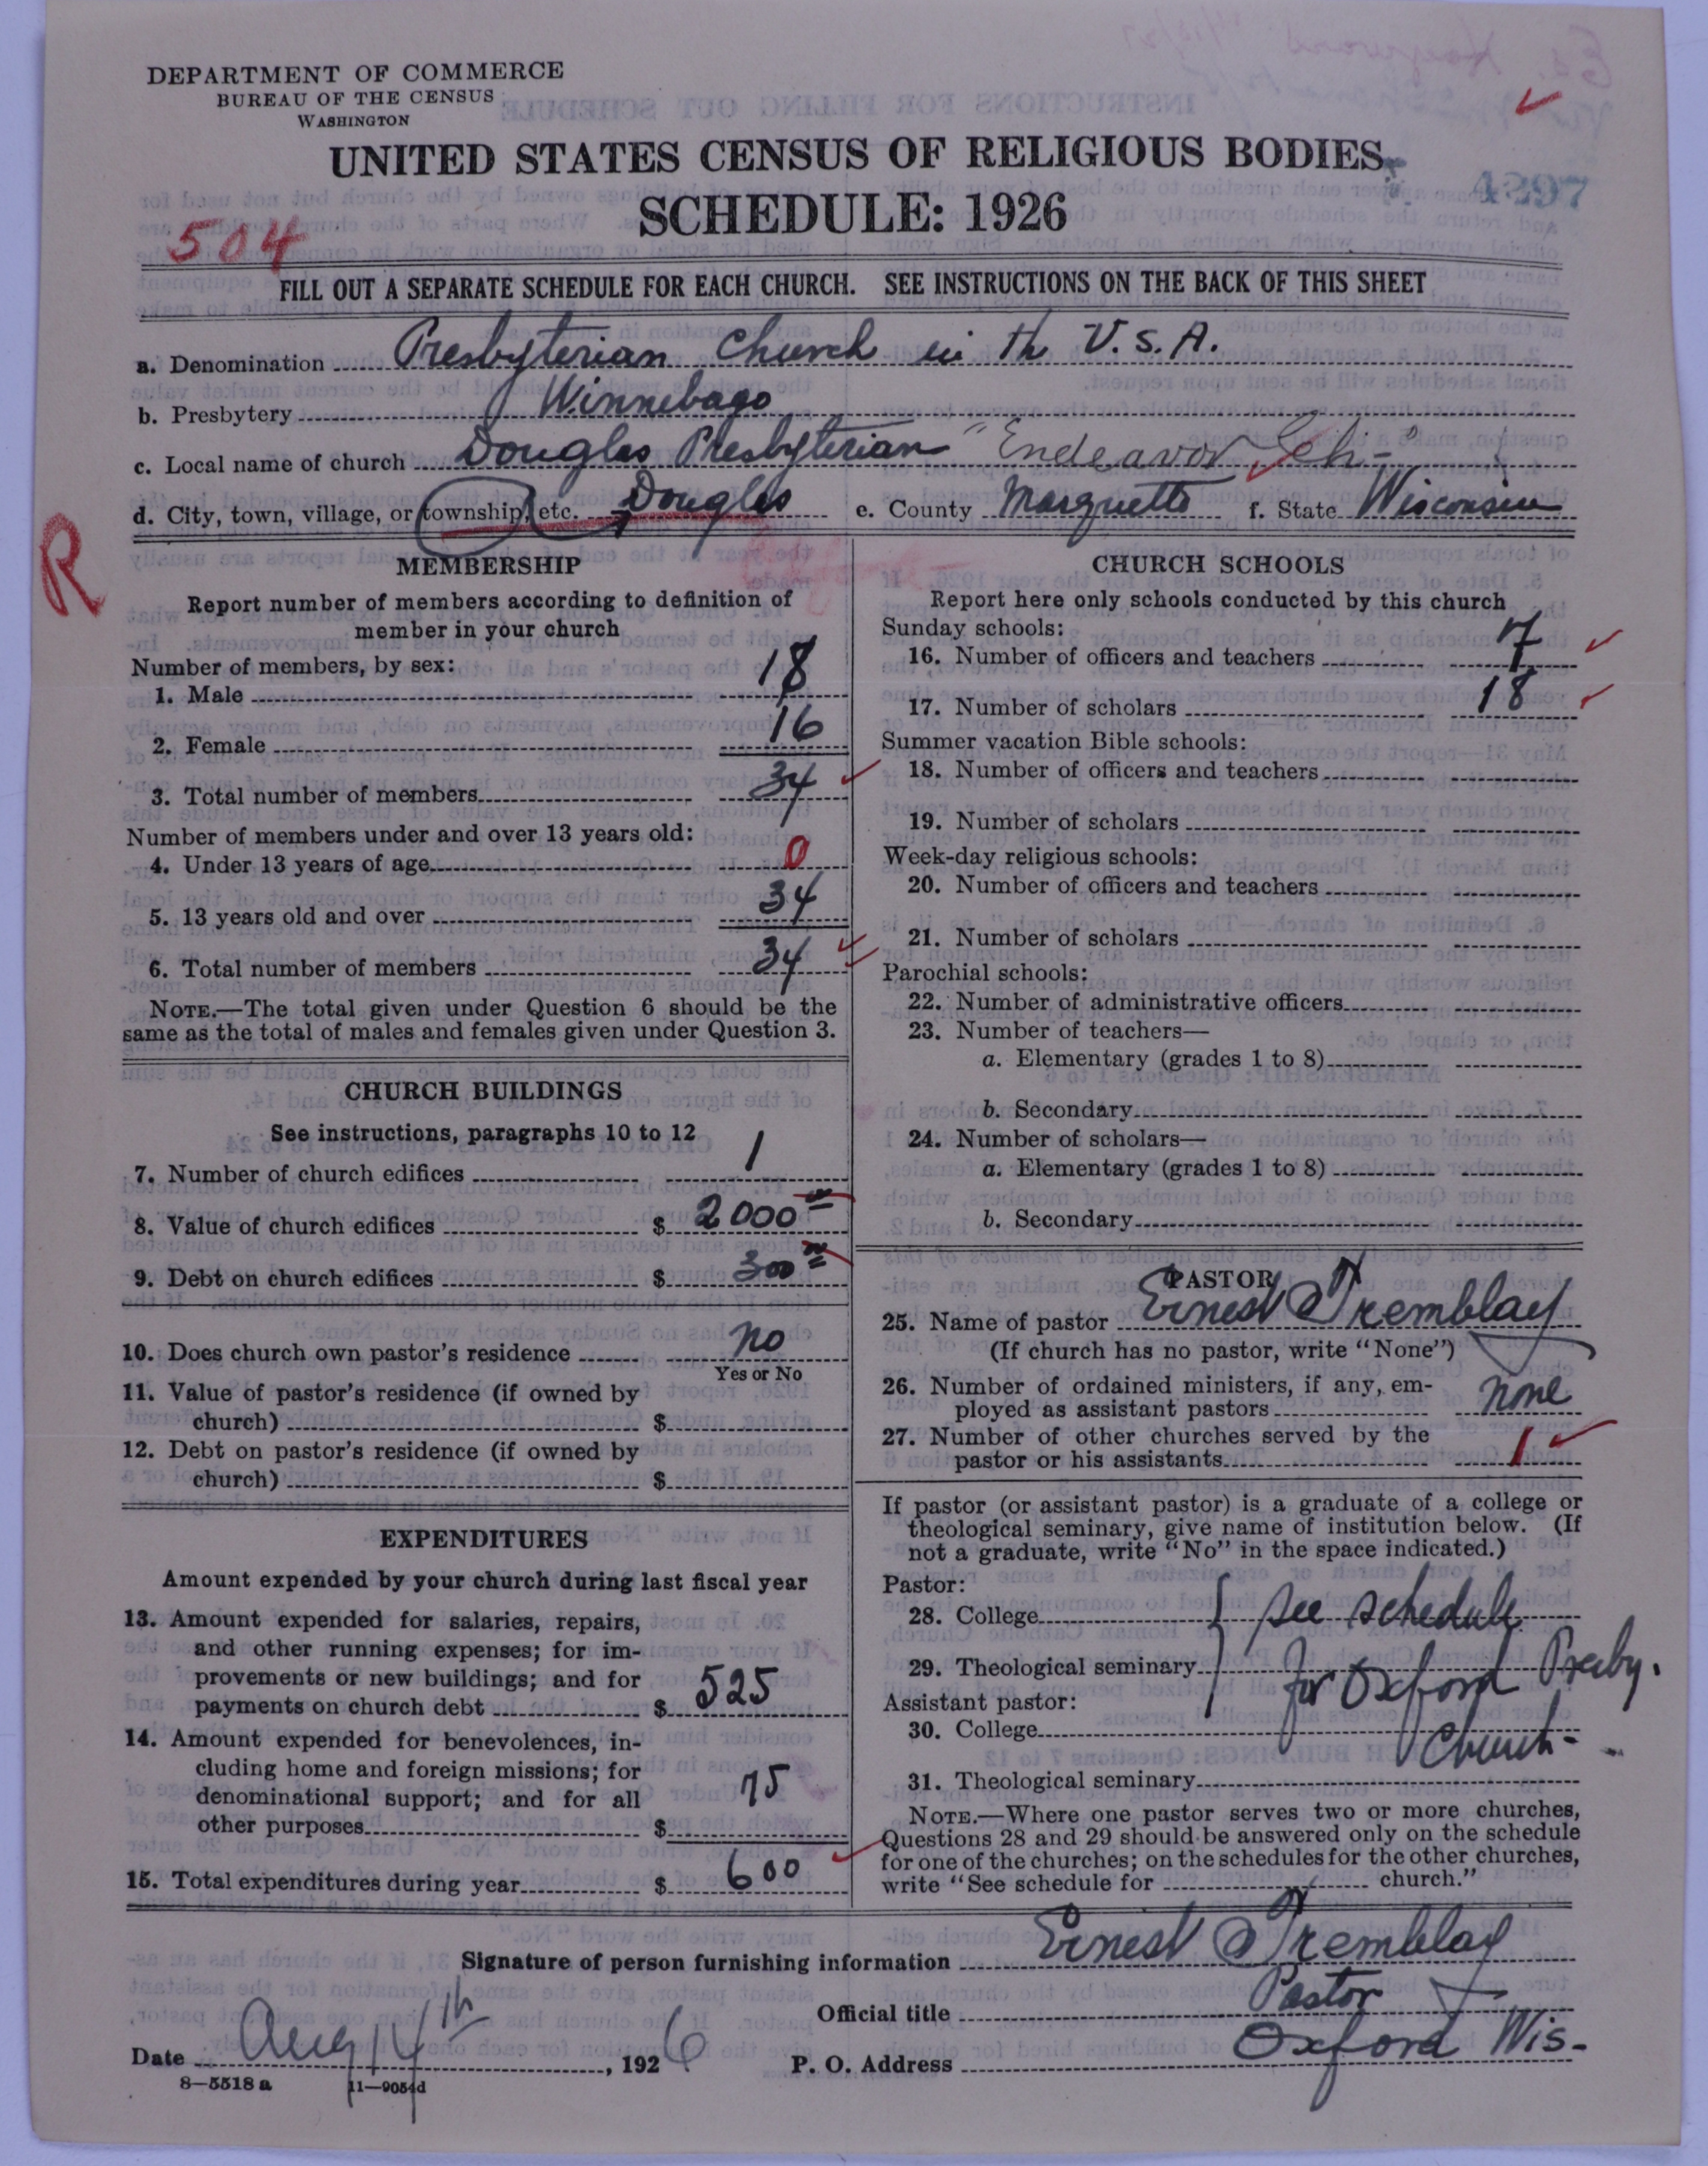 DEPARTMENT OF COMMERCE
BUREAU OF THE CENSUS
WASHINGTON
UNITED STATES CENSUS OF RELIGIOUS BODIES
SCHEDULE: 1926
4297
504
FILL OUT A SEPARATE SCHEDULE FOR EACH CHURCH. SEE INSTRUCTIONS ON THE BACK OF THIS SHEET
a. Denomination Presbyterian Church in the U.S.A.
b. Presbytery Winnebago
c. Local name of church Douglas Presbyterian "Endeavor Ch-"
d. City, town, village, or township, etc. Douglas e. County Marquette f. State Wisconsin
R
MEMBERSHIP
Report number of members according to definition of
member in your church
Number of members, by sex:
1. Male 18
2. Female 16
3. Total number of members 34
Number of members under and over 13 years old:
4. Under 13 years of age 0
5. 13 years old and over 34
6. Total number of members 34
NOTE.—The total given under Question 6 should be the
same as the total of males and females given under Question 3.
CHURCH BUILDINGS
See instructions, paragraphs 10 to 12
7. Number of church edifices 1
8. Value of church edifices $ 2000
9. Debt on church edifices $ 300
10. Does church own pastor's residence no
Yes or No
11. Value of pastor's residence (if owned by
church) $
12. Debt on pastor's residence (if owned by
church) $
EXPENDITURES
Amount expended by your church during last fiscal year
13. Amount expended for salaries, repairs,
and other running expenses; for im-
provements or new buildings; and for
payments on church debt $ 525
14. Amount expended for benevolences, in-
cluding home and foreign missions; for
denominational support; and for all
other purposes $ 75
15. Total expenditures during year $ 600
CHURCH SCHOOLS
Report here only schools conducted by this church
Sunday schools:
16. Number of officers and teachers 7
17. Number of scholars 18
Summer vacation Bible schools:
18. Number of officers and teachers
19. Number of scholars
Week-day religious schools:
20. Number of officers and teachers
21. Number of scholars
Parochial schools:
22. Number of administrative officers
23. Number of teachers—
a. Elementary (grades 1 to 8)
b. Secondary
24. Number of scholars—
a. Elementary (grades 1 to 8)
b. Secondary
PASTOR
25. Name of pastor Ernest A Tremblay
(If church has no pastor, write "None")
26. Number of ordained ministers, if any, em-
ployed as assistant pastors none
27. Number of other churches served by the
pastor or his assistants 1
If pastor (or assistant pastor) is a graduate of a college or
theological seminary, give name of institution below. (If
not a graduate, write "No" in the space indicated.)
Pastor:
28. College see schedule
29. Theological seminary for Oxford Presby.
Assistant pastor:
30. College Church-
31. Theological seminary
NOTE.—Where one pastor serves two or more churches,
Questions 28 and 29 should be answered only on the schedule
for one of the churches; on the schedules for the other churches,
write "See schedule for church."
Signature of person furnishing information Ernest A Tremblay
Official title Pastor
Date Aug 14th, 1926 P. O. Address Oxford Wis-
8—5518 a 11—9054d